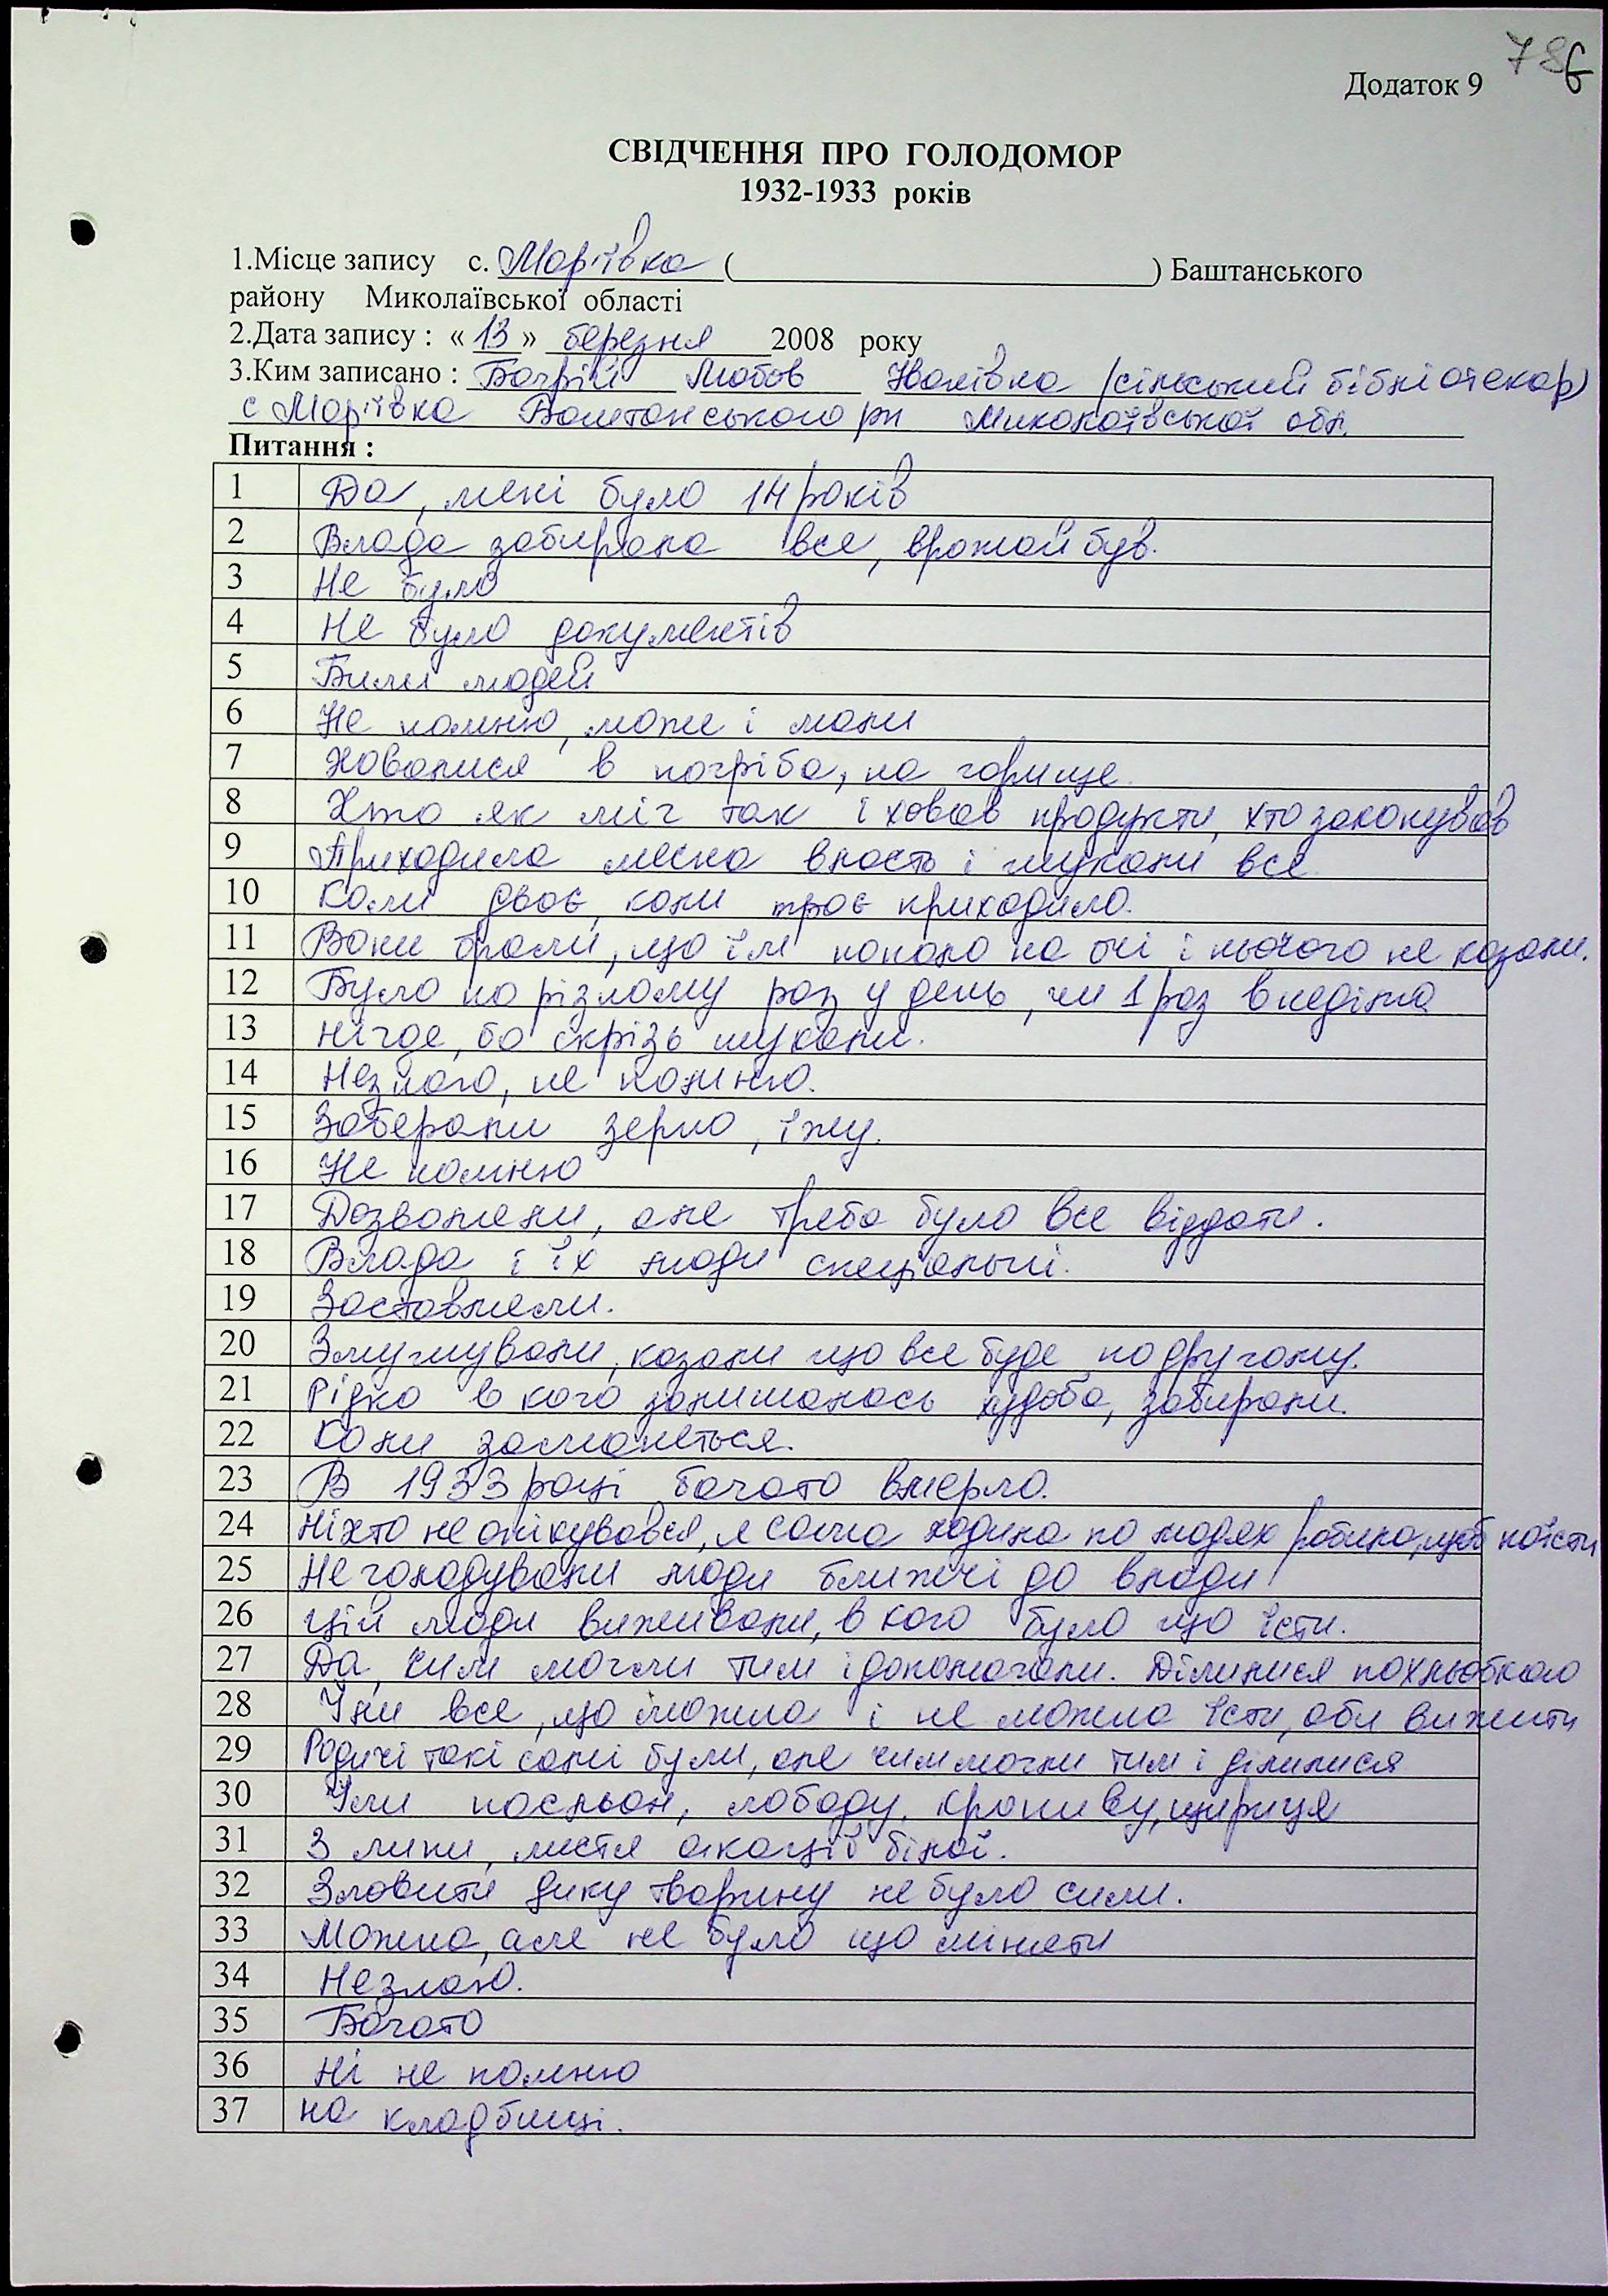 786
Додаток 9
СВІДЧЕННЯ ПРО ГОЛОДОМОР
1932-1933 років
1.Місце запису с. Мар'ївка ( ) Баштанського
району Миколаївської області
2.Дата запису : « 13 » березня 2008 року
3.Ким записано : Багрій Любов Іванівна (сільський бібліотекар)
с Мар'ївка Баштанського рн Миколаївської обл.
Питання :
1 Да, мені було 14 років
2 Влада забирала все, врожай був.
3 Не було
4 Не було документів
5 Били людей
6 Не помню, може і мали
7 Ховалися в погріба, на горище.
8 Хто як міг так і ховав продукти, хто закопував
9 Приходила месна власть і шукали все
10 Коли двоє, коли троє приходило.
11 Вони брали, що їм попало на очі і нічого не казали.
12 Було по різному раз у день, чи 1 раз в неділю
13 Нігде, бо скрізь шукали.
14 Незнаю, не помню.
15 Заберали зерно, їжу.
16 Не помню
17 Дозволяли, але треба було все віддати.
18 Влада і їх люди спеціальні.
19 Заставляли.
20 Змушували, казали що все буде по другому.
21 Рідко в кого залишалась худоба, забирали.
22 Коли засталеться.
23 В 1933 році багато вмерло.
24 Ніхто не опікувався, я сама ходила по людях робила, щоб поїсти
25 Не голодували люди ближчі до влади
26 Цій люди виживали, в кого було що їсти.
27 Да, чим могли тим і допомагали. Ділилися похльобкою
28 Їли все, що можна і не можна їсти, аби вижити
29 Родичі такі самі були, але чим могли тим і ділилися
30 Їли пасльон, лободу, кропиву, щириця
31 З липи, листя акації білої.
32 Зловити дику тварину не було сили.
33 Можна, але не було що міняти
34 Незнаю.
35 Багато
36 Ні не помню
37 на кладбищі.